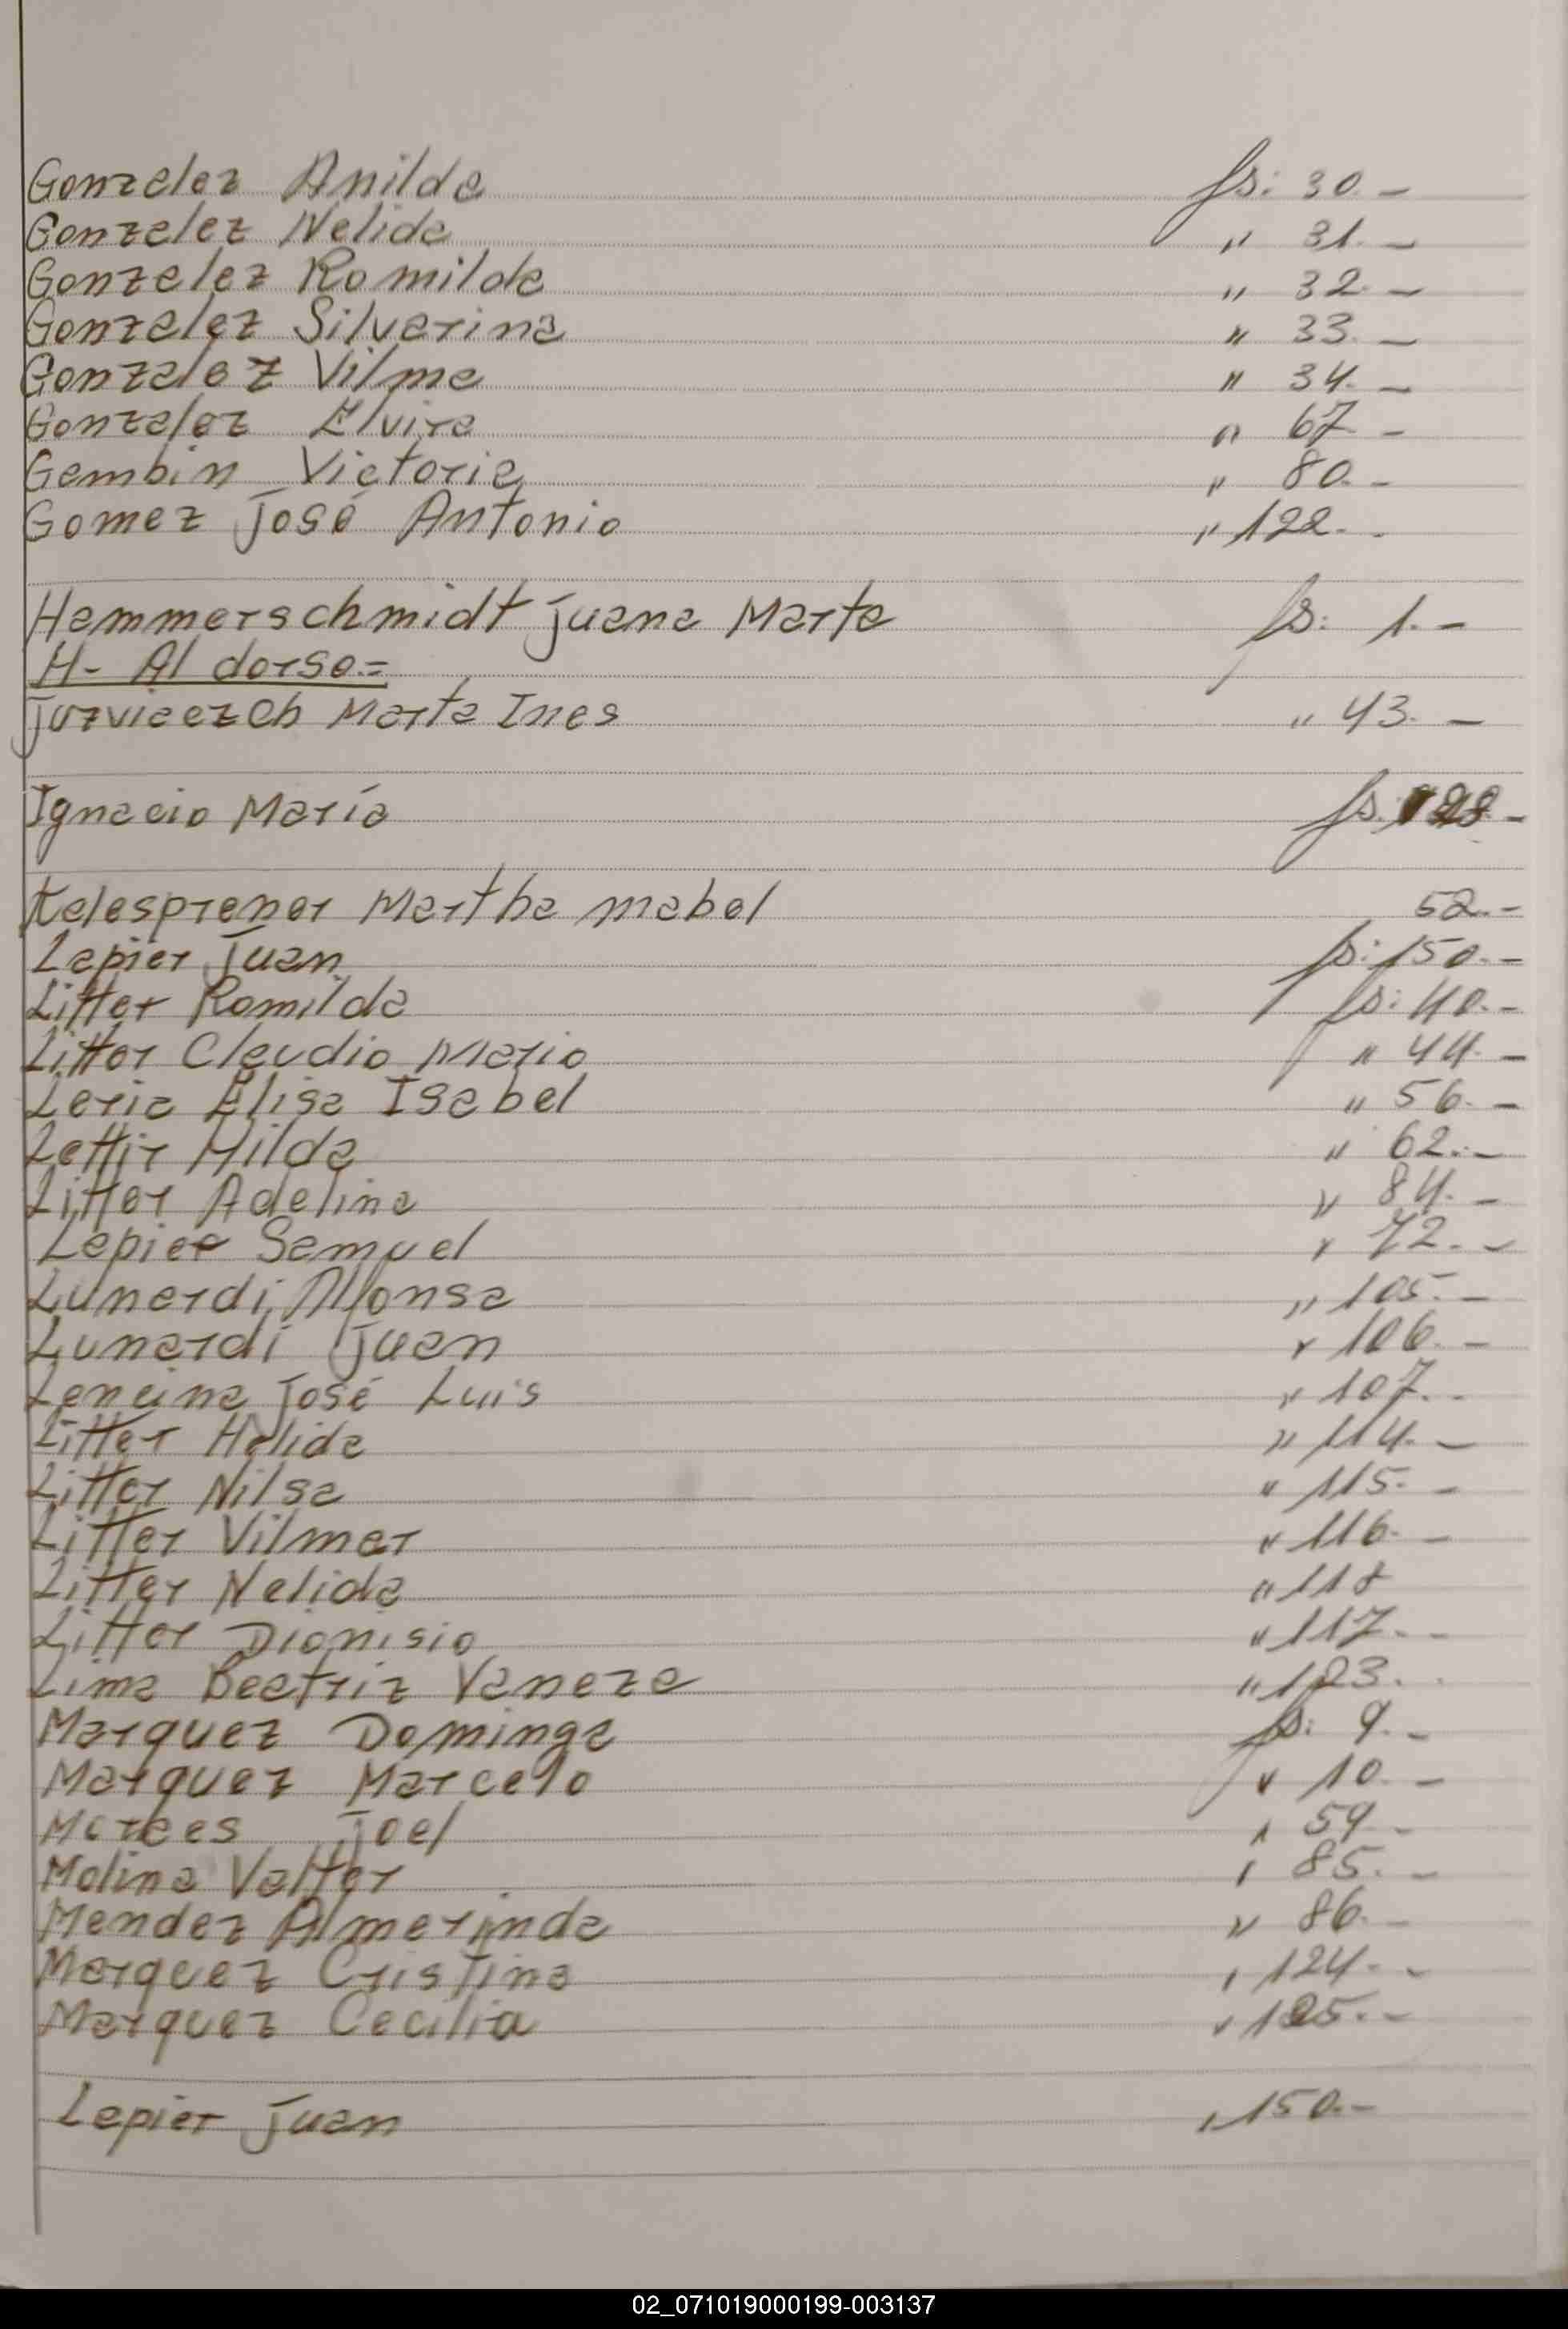 Gonzalez Anilda fs: 30.-
Gonzalez Nelida " 31.-
Gonzalez Romilda " 32.-
Gonzalez Silvarina " 33.-
Gonzalez Vilma " 34.-
Gonzalez Elvira " 67.-
Gambin Victoria " 80.-
Gomez José Antonio " 122.-
Hammerschmidt Juana Marta fs: 1.-
H- Al dorso.=
Marta Ines " 43.-
Ignacio María fs:
Kelesprener Martha mabel 52.-
Lapier Juan fs: 150.-
Litter Romilda fs: 40.-
Litter Claudio Mario " 44.-
Leria Elisa Isabel " 56.-
Hilda " 62.-
Litter Adelina " 84.-
Lapier Samuel " 72.-
Lunardi, Alfonsa " 105.-
Lunardi Juan " 106.-
Lencina José Luis " 107.-
Litter Helida " 114.-
Litter Nilsa " 115.-
Litter Vilmar " 116.-
Litter Nelida " 118
Litter Dionisio " 117.-
Lima Beatriz Vaneza " 123.
Marquez Dominga fs: 9.-
Marquez Marcelo " 10.-
Joel " 59.-
Molina Valter " 85.-
Mendez Almerinda " 86.-
Marquez Cristina " 124.-
Marquez Cecilia " 125.-
Lapier Juan " 150.-
02_071019000199-003137